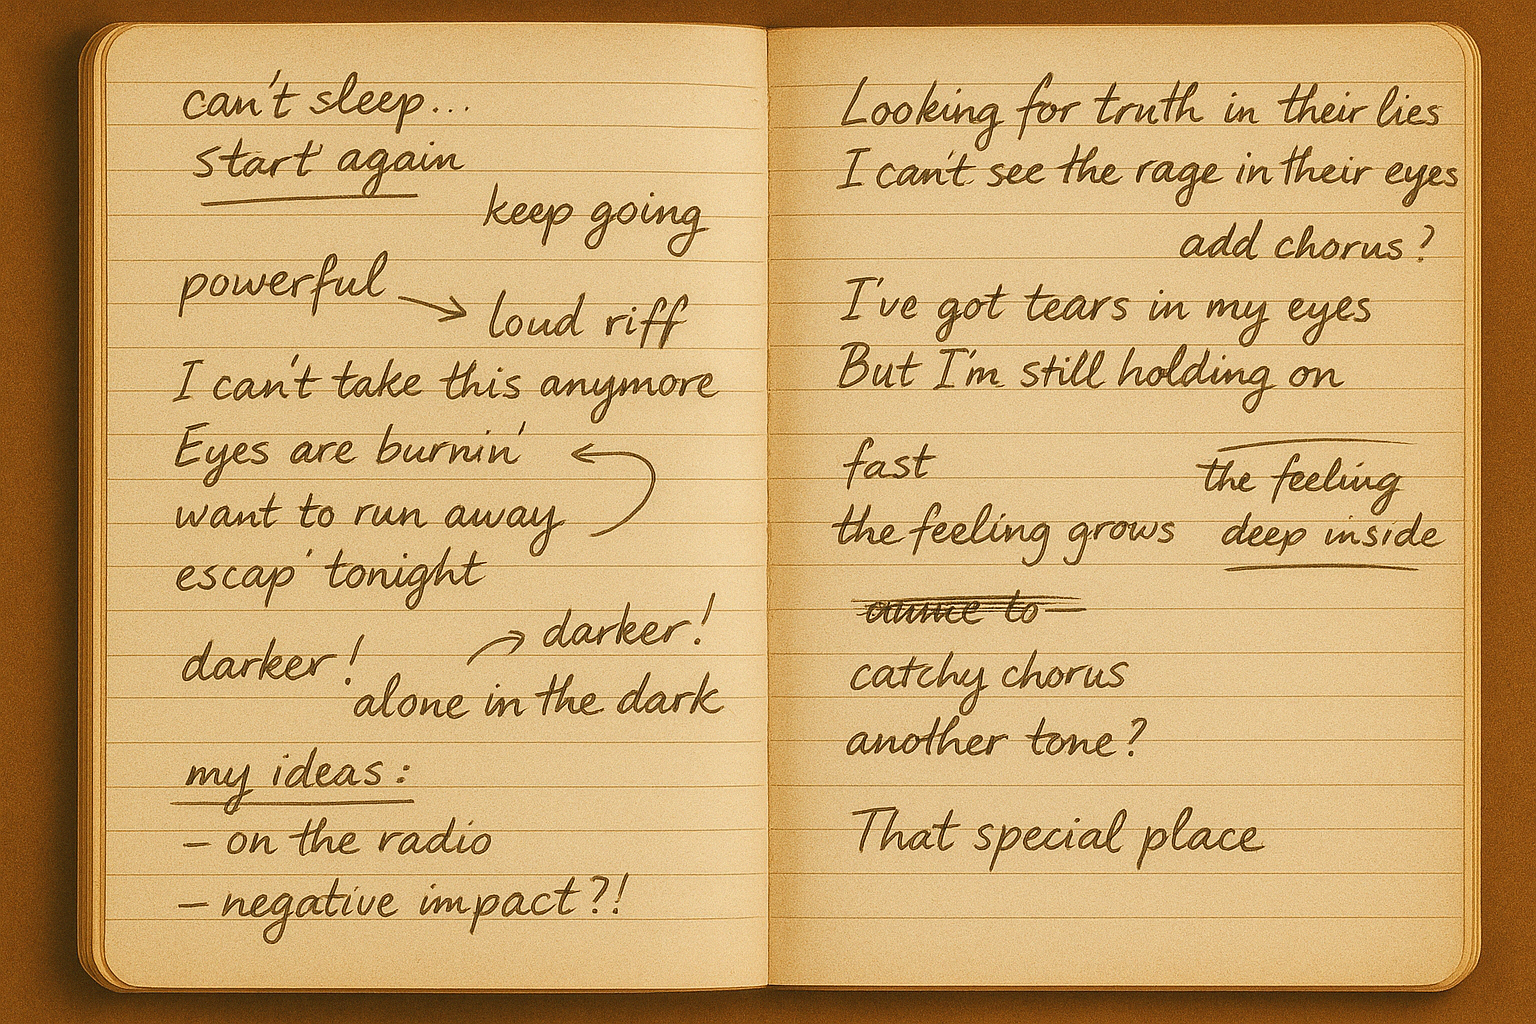 can't sleep...
start again
keep going
powerful
loud riff
I can't take this anymore
Eyes are burnin'
want to run away
escap' tonight
darker!
darker!
alone in the dark
my ideas:
– on the radio
– negative impact?!
Looking for truth in their lies
I can't see the rage in their eyes
add chorus?
I've got tears in my eyes
But I'm still holding on
fast
the feeling
the feeling grows
deep inside
to
catchy chorus
another tone?
That special place